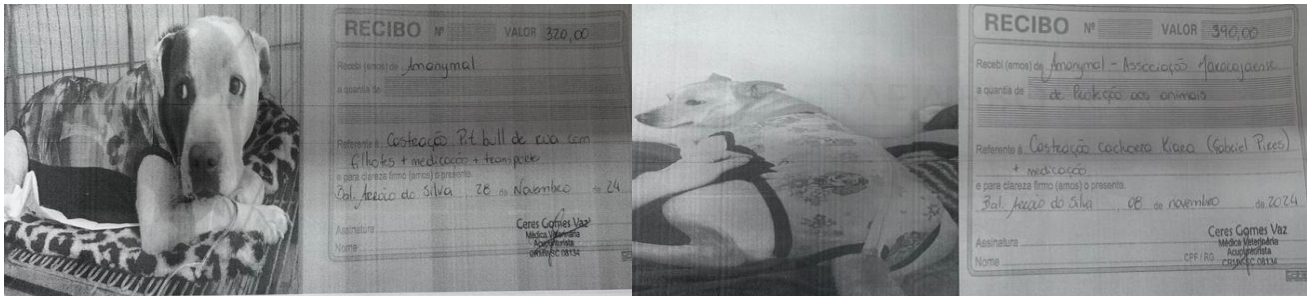 RECIBO Nº VALOR 320,00
Recebi (emos) de Amanymal
a quantia de
Referente à Castração Pit bull de rua com
filhotes + medicação + transporte
e para clareza firmo (amos) o presente.
Bal. Arroio do Silva 28 de Novembro de 24
Assinatura
Nome
Ceres Gomes Vaz
Médica Veterinária
Acupunturista
CRMV/SC 08134
RECIBO Nº VALOR 390,00
Recebi (emos) de Amanymal - Associação Maracajaense
a quantia de de Proteção aos animais
Referente à Castração cachorra Kiara (Gabriel Pires)
+ medicação
e para clareza firmo (amos) o presente.
Bal. Arroio do Silva 08 de novembro de 2024
Assinatura
Nome CPF / RG
Ceres Gomes Vaz
Médica Veterinária
Acupunturista
CRMV/SC 08134